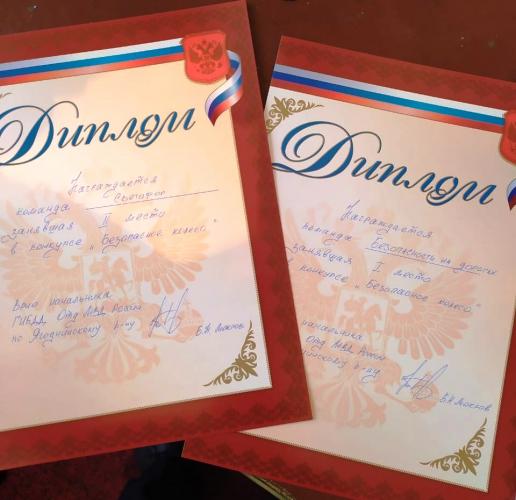 Диплом
Награждается
команда Светофор
занявшая II место
в конкурсе „Безопасное колесо."
Врио начальника
ГИБДД Отд МВД России
по Ягоднинскому р-ну
Диплом
Награждается
команда Безопасность на дорогах
занявшая I место
конкурсе „Безопасное колесо."
начальника
Отд МВД России
р-ну